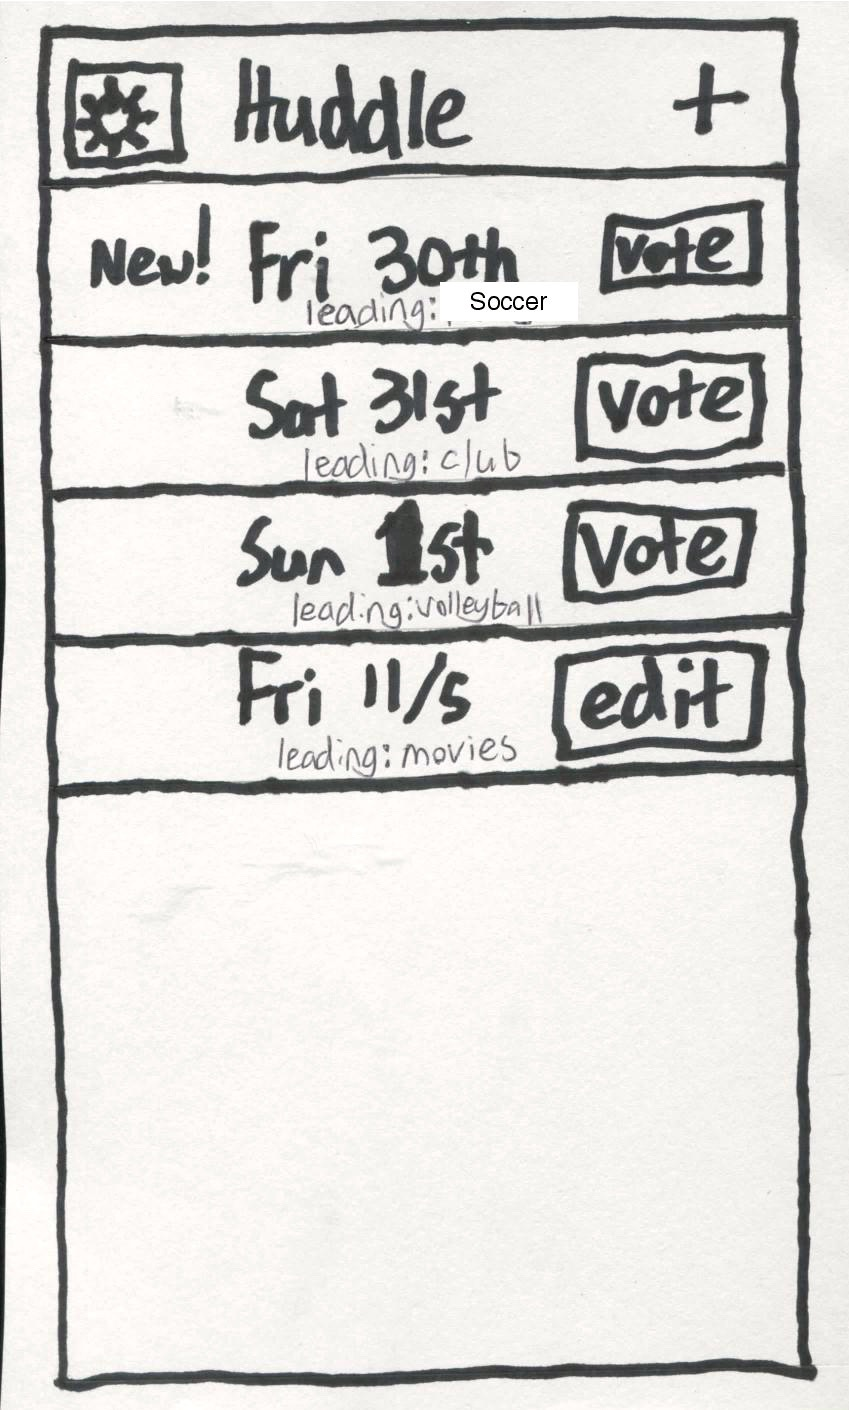 Huddle +
New! Fri 30th vote
leading: Soccer
Sat 31st vote
leading: club
Sun 1st vote
leading: volleyball
Fri 11/5 edit
leading: movies